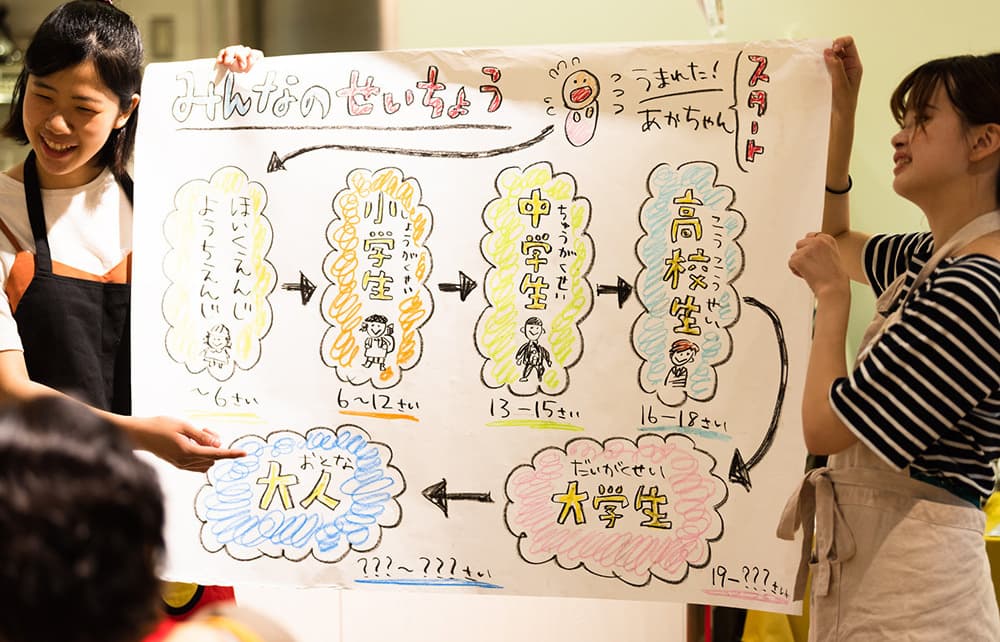 みんなのせいちょう
うまれた!
あかちゃん
スタート
ほいくえんじ
ようちえんじ
~6さい
小学生
しょうがくせい
6~12さい
中学生
ちゅうがくせい
13-15さい
高校生
こうこうせい
16-18さい
だいがくせい
大学生
19-???さい
おとな
大人
???~???さい